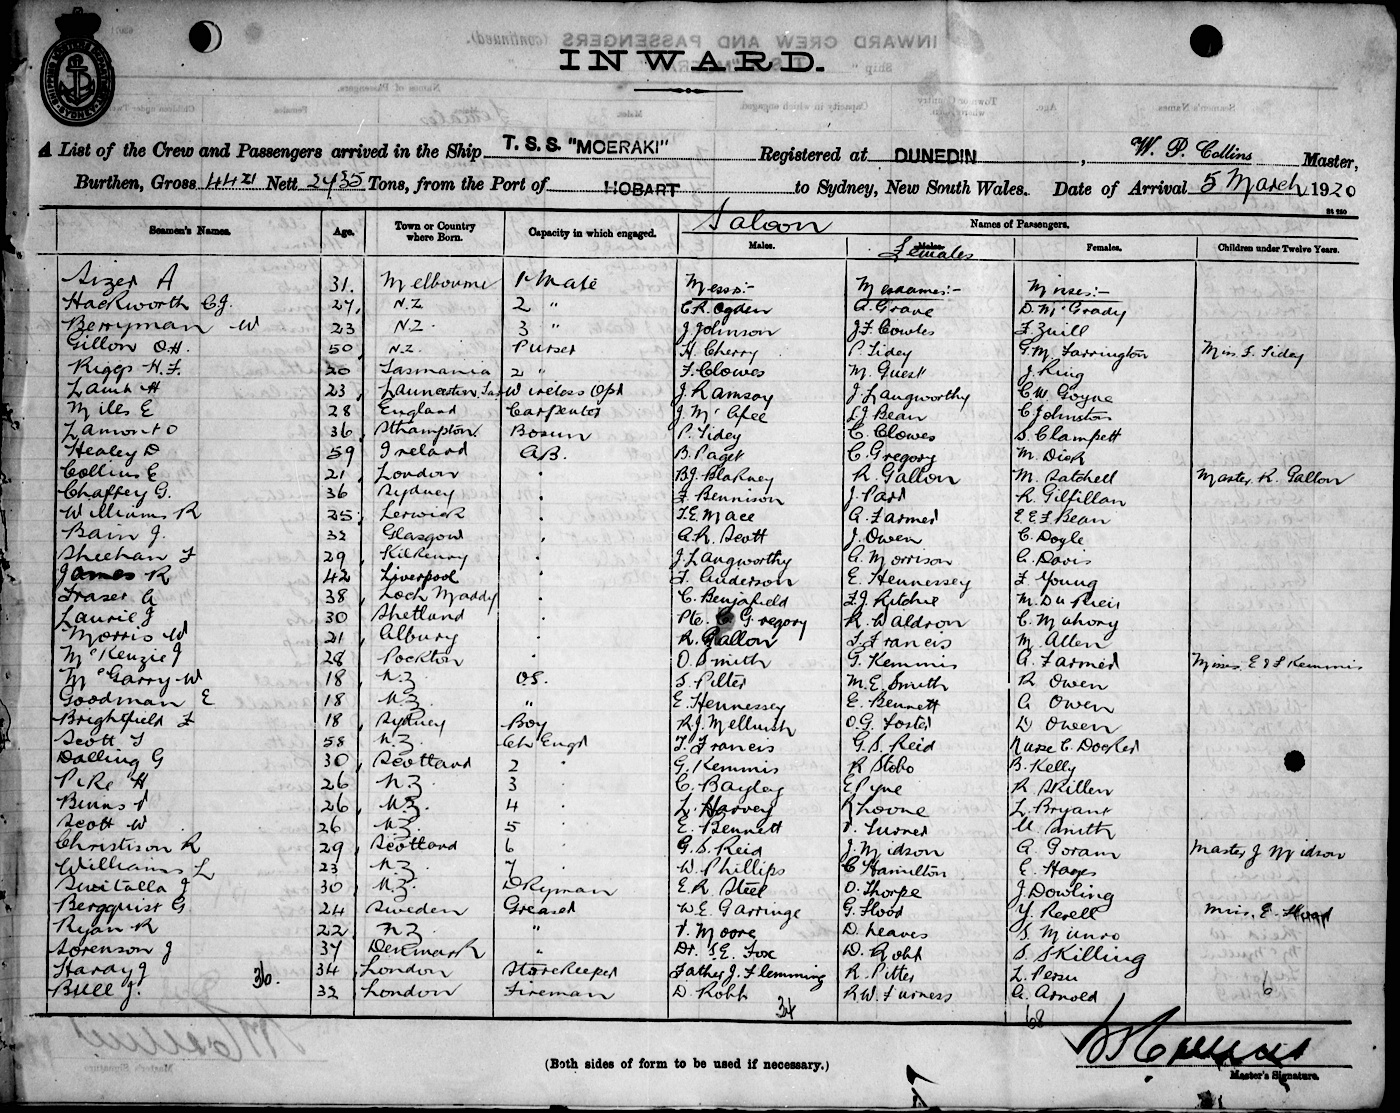 INWARD.
A List of the Crew and Passengers arrived in the Ship T. S. S. "MOERAKI" Registered at DUNEDIN, W. P. Collins Master,
Burthen, Gross 4421 Nett 2435 Tons, from the Port of HOBART to Sydney, New South Wales. Date of Arrival 5 March 1920
Seamen's Names. Age. Town or Country where Born. Capacity in which engaged. Saloon Names of Passengers.
Males. Females Females. Children under Twelve Years.
Sizer A 31. Melbourne 1 Mate Messrs:- Mesdames:- Misses:-
Hackworth C.J. 27, N.Z 2 " C.R. Ogden A. Grave D. McGrady
Berryman W 23 N.Z 3 " J Johnson J.F. Cowles F. Zuill
Gillon O.H. 50 N.Z. Purser H. Cherry P. Tidey G.M. Farrington Miss F. Tidey
Riggs H.F. 20 Tasmania 2 " F. Clowes M. Guest J. King
Lamb H 23, Launceston, Tas Wireless Optr J. Ramsay J Langworthy C.W. Goyne
Miles E 28 England Carpenter J. McAfee L.J Bean C Johnston
Lamont O 36, Sthampton Bosun P. Tidey C. Clowes S. Clampett
Healey D 59 Ireland A.B. B. Paget C. Gregory M. Dick
Collins E 21, London " B.J. Blakney R. Gallon M. Satchell Master R. Gallon
Chaffey G. 36 Sydney " F. Bennison J. Parr R. Gilfillan
Williams R 25, Lerwick " T.E. Mace A. Farmer E.E.F Bean
Bain J. 32 Glasgow " A.R. Scott J. Owen C. Doyle
Sheehan T 29, Kilkenny " J. Langworthy A. Morrison C. Davis
James R 42 Liverpool " F. Anderson E. Hennessey F. Young
Fraser A 38, Loch Maddy " C. Benjafield F.J. Ritchie M. Du
Laurie J 30 Shetland " Pte. C. Gregory R. Waldron C. Mahony
Morris W 21, Albury " R. Gallon T. Francis M. Allen
McKenzie J 28 Pockton " O. Smith G. Kemmis A. Farmer Misses E & F Kemmis
McGarry W 18, N.Z O.S. S. Pilter M.E. Smith R Owen
Goodman E 18 N.Z " E. Hennessey E. Bennett A Owen
Brightfield F 18, Sydney Boy R.J. Melluish O.G. Foster D Owen
Scott T 58 N.Z. Ch Engr T. Francis G.S. Reid Nurse C. Docker
Dalling G 30, Scotland 2 " G. Kemmis R Stobo B. Kelly
Pike H 26 N.Z 3 " C. Bayley E Pyne R Skillen
Binns 26, N.Z. 4 " L. Harvey Loone L. Bryant
Scott W 26 N.Z 5 " E. Bennett Turner M. Smith
Christison R 29, Scotland 6 " G.S. Reid J. Midson A. Goram Master J Midson
Williams L 23 N.Z 7 " W. Phillips C Hamilton E. Hayes
Switalla J 30, N.Z. Dkyman E.R. Steel O. Thorpe J Dowling
Bergquist G 24 Sweden Greaser W.E. Garringe G. Flood Y. Revell Miss. E. Flood
Ryan R 22, N.Z. " Moore D. Leaves S. Munro
Sorenson J 37 Denmark " Dr. T.E. Fox D. Robb S. Skilling
Hardy J 34, London Storekeeper Father J. Flemming R. Pitter L. Persu
Bull J. 36. 32 London Fireman D. Robb R.W. Furness A. Arnold 6
34 68
(Both sides of form to be used if necessary.)
Master's Signature.